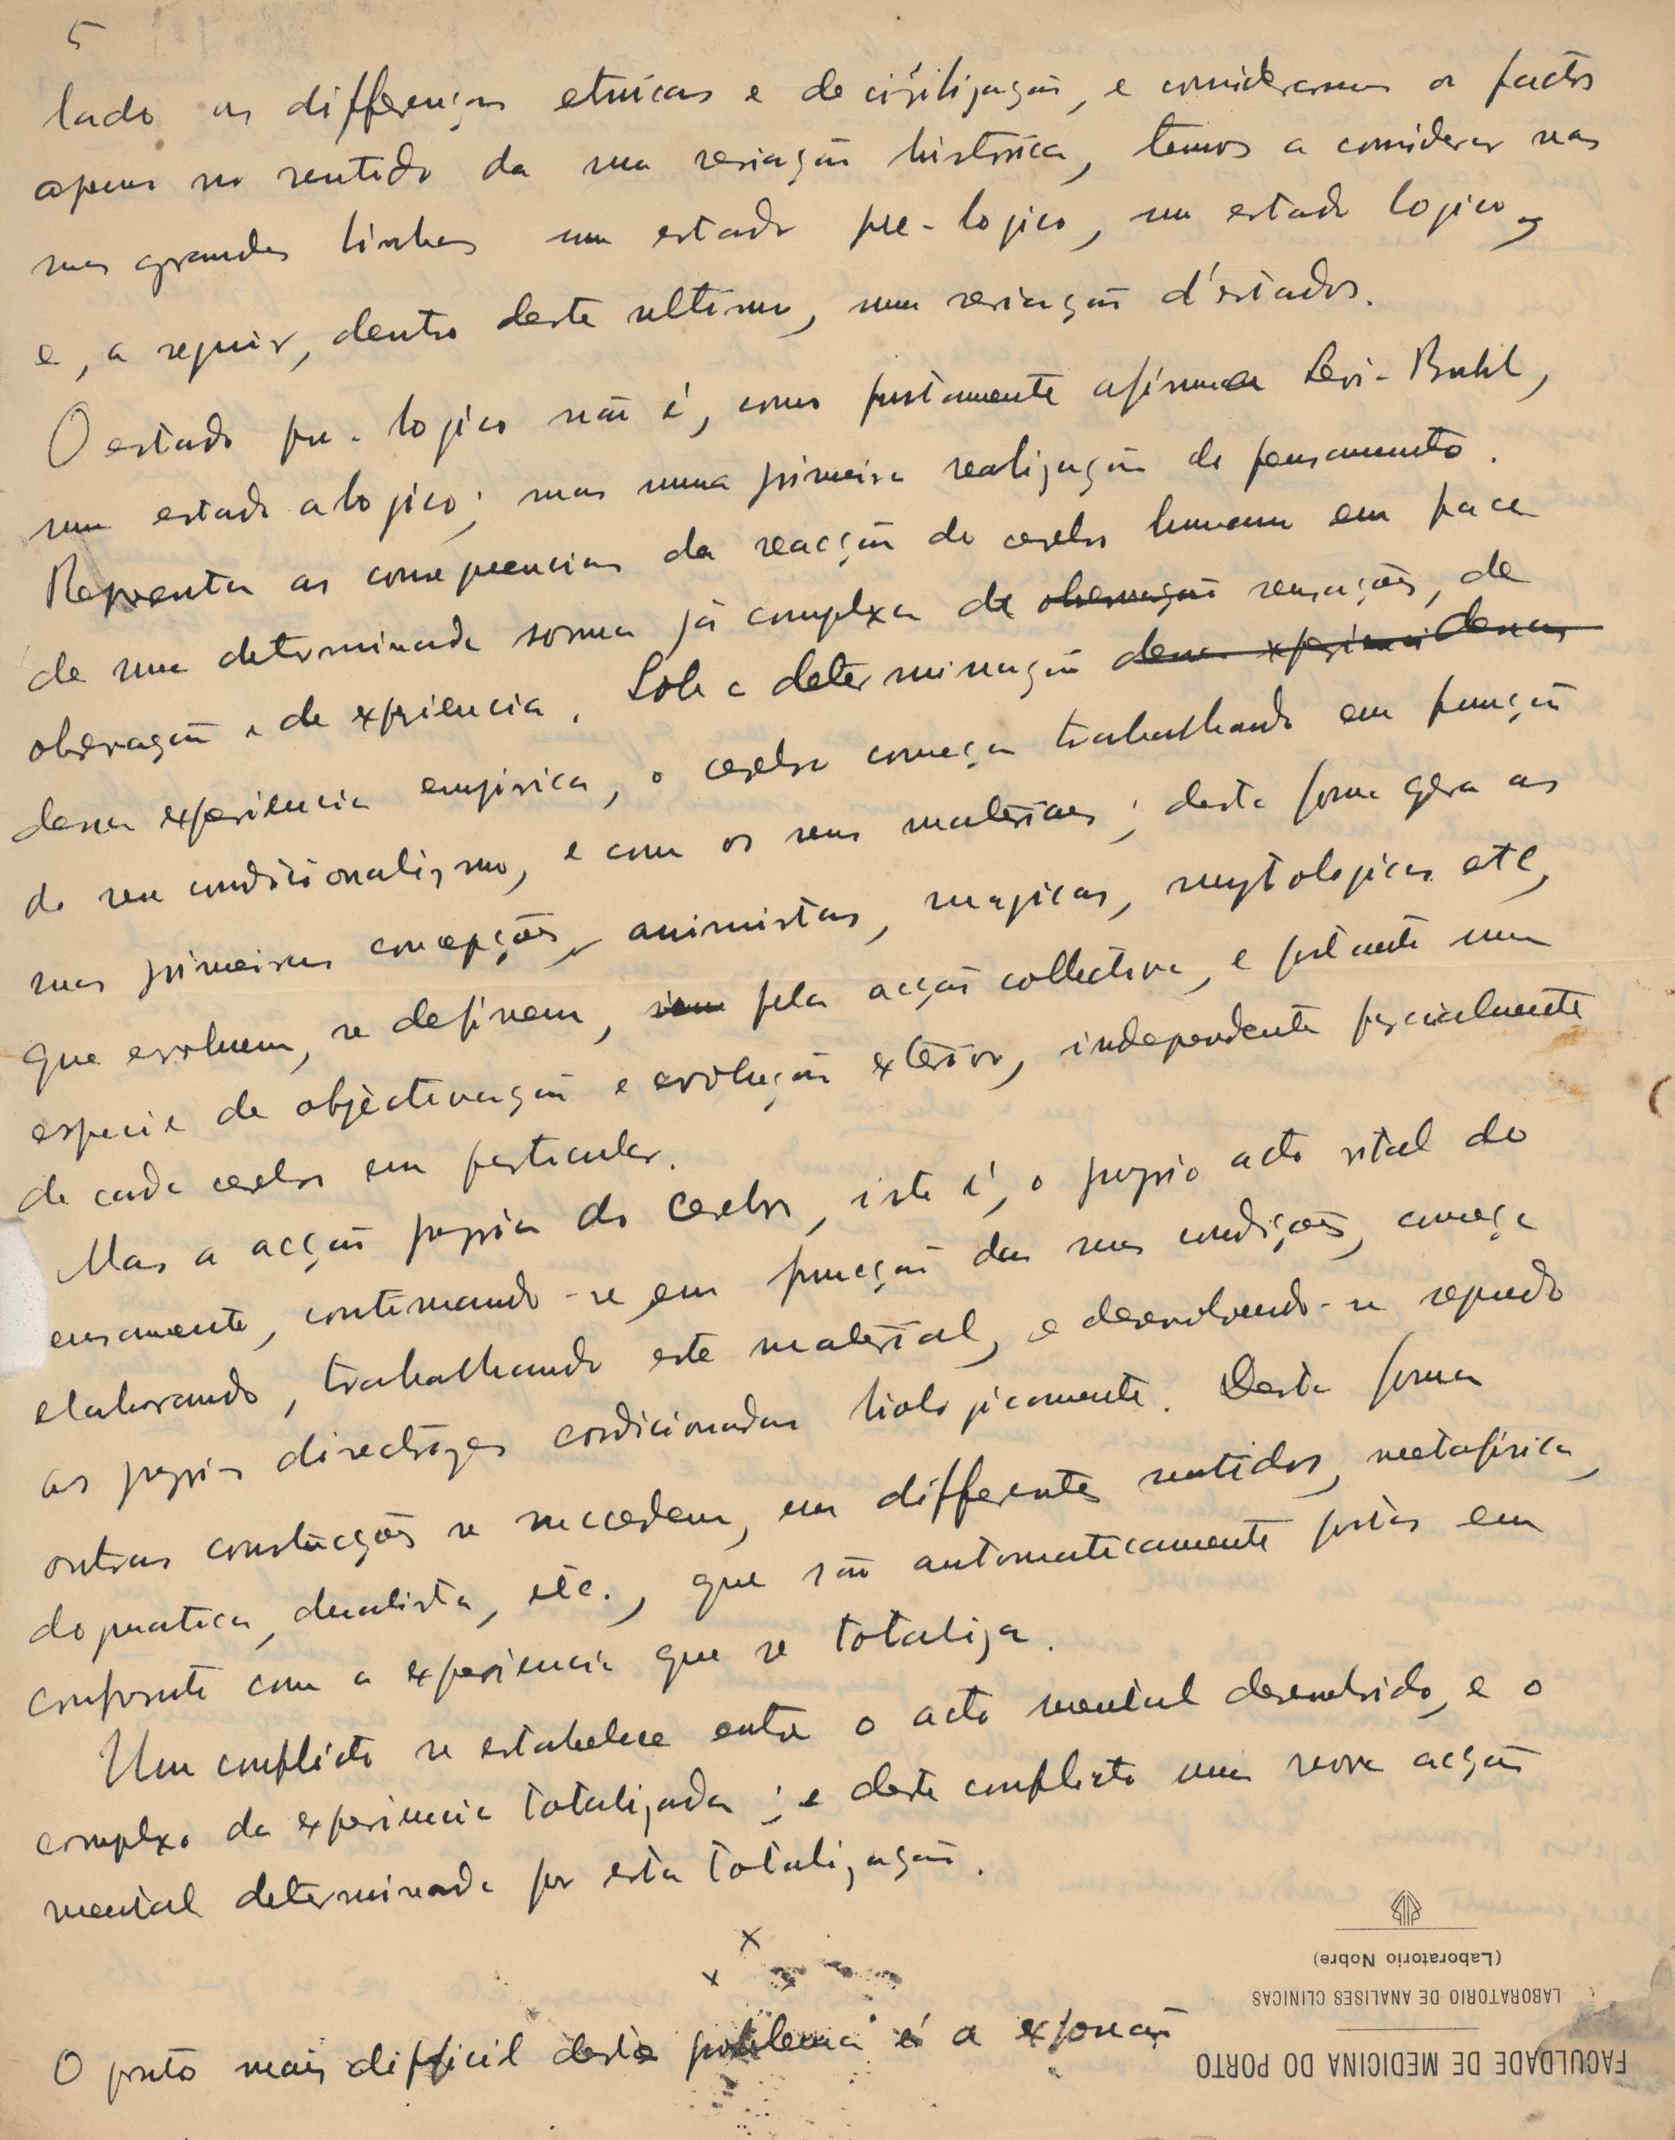 5
lado as differenças etnicas e de civilização, e considerarmos os factos
apenas no sentido da sua seriação historica, temos a considerar nas
suas grandes linhas um estado pre-logico, um estado logico,
e, a seguir, dentro deste ultimo, uma seriação d'estados.
O estado pre-logico não é, como justamente afirma Levi-Bruhl,
um estado alogico; mas uma primeira realização do pensamento.
Representa as consequencias da reacção do cerebro humano em face
de uma determinada somma já complexa de observação sensações, de
observação e de experiencia. Sob a determinação dessa experiencia dessas
dessa experiencia empirica, o cerebro começa trabalhando em função
do seu condicionalismo, e com os seus materiaes; desta forma gera as
suas primeiras concepções, animistas, magicas, mytologicas etc,
que evoluem, se definem, pela acção collectiva, e portanto uma
especie de objectivação e evolução exterior, independente parcialmente
de cada cerebro em particular.
Mas a acção propria do cerebro, isto é, o proprio acto vital do
ensamento, continuando-se em funcção das suas condições, começa
elaborando, trabalhando este material, e desenvolvendo-se segundo
as proprias directrizes condicionadas biologicamente. Desta forma
outras construcções se succedem, em differentes sentidos, metafisica,
dogmatica, dualista, etc., que são automaticamente postas em
confronto com a experiencia que se totaliza.
Um conflicto se estabelece entre o acto mental desenvolvido, e o
complexo da experiencia totalizada; e deste conflicto uma nova acção
mental determinada por esta totalização.
x
x x
O ponto mais difficil deste problema é a
FACULDADE DE MEDICINA DO PORTO
LABORATORIO DE ANALISES CLINICAS
(Laboratorio Nobre)